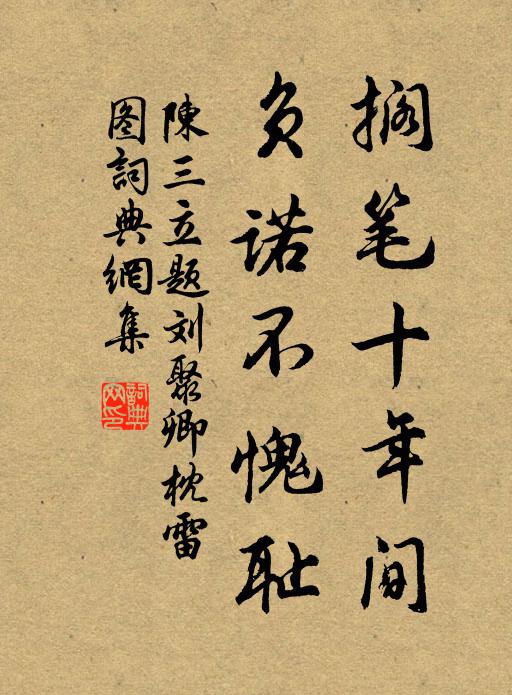 搁笔十年间
负诺不愧耻
陳三立题刘聚卿枕雷
图詞典網集
詞典
网印